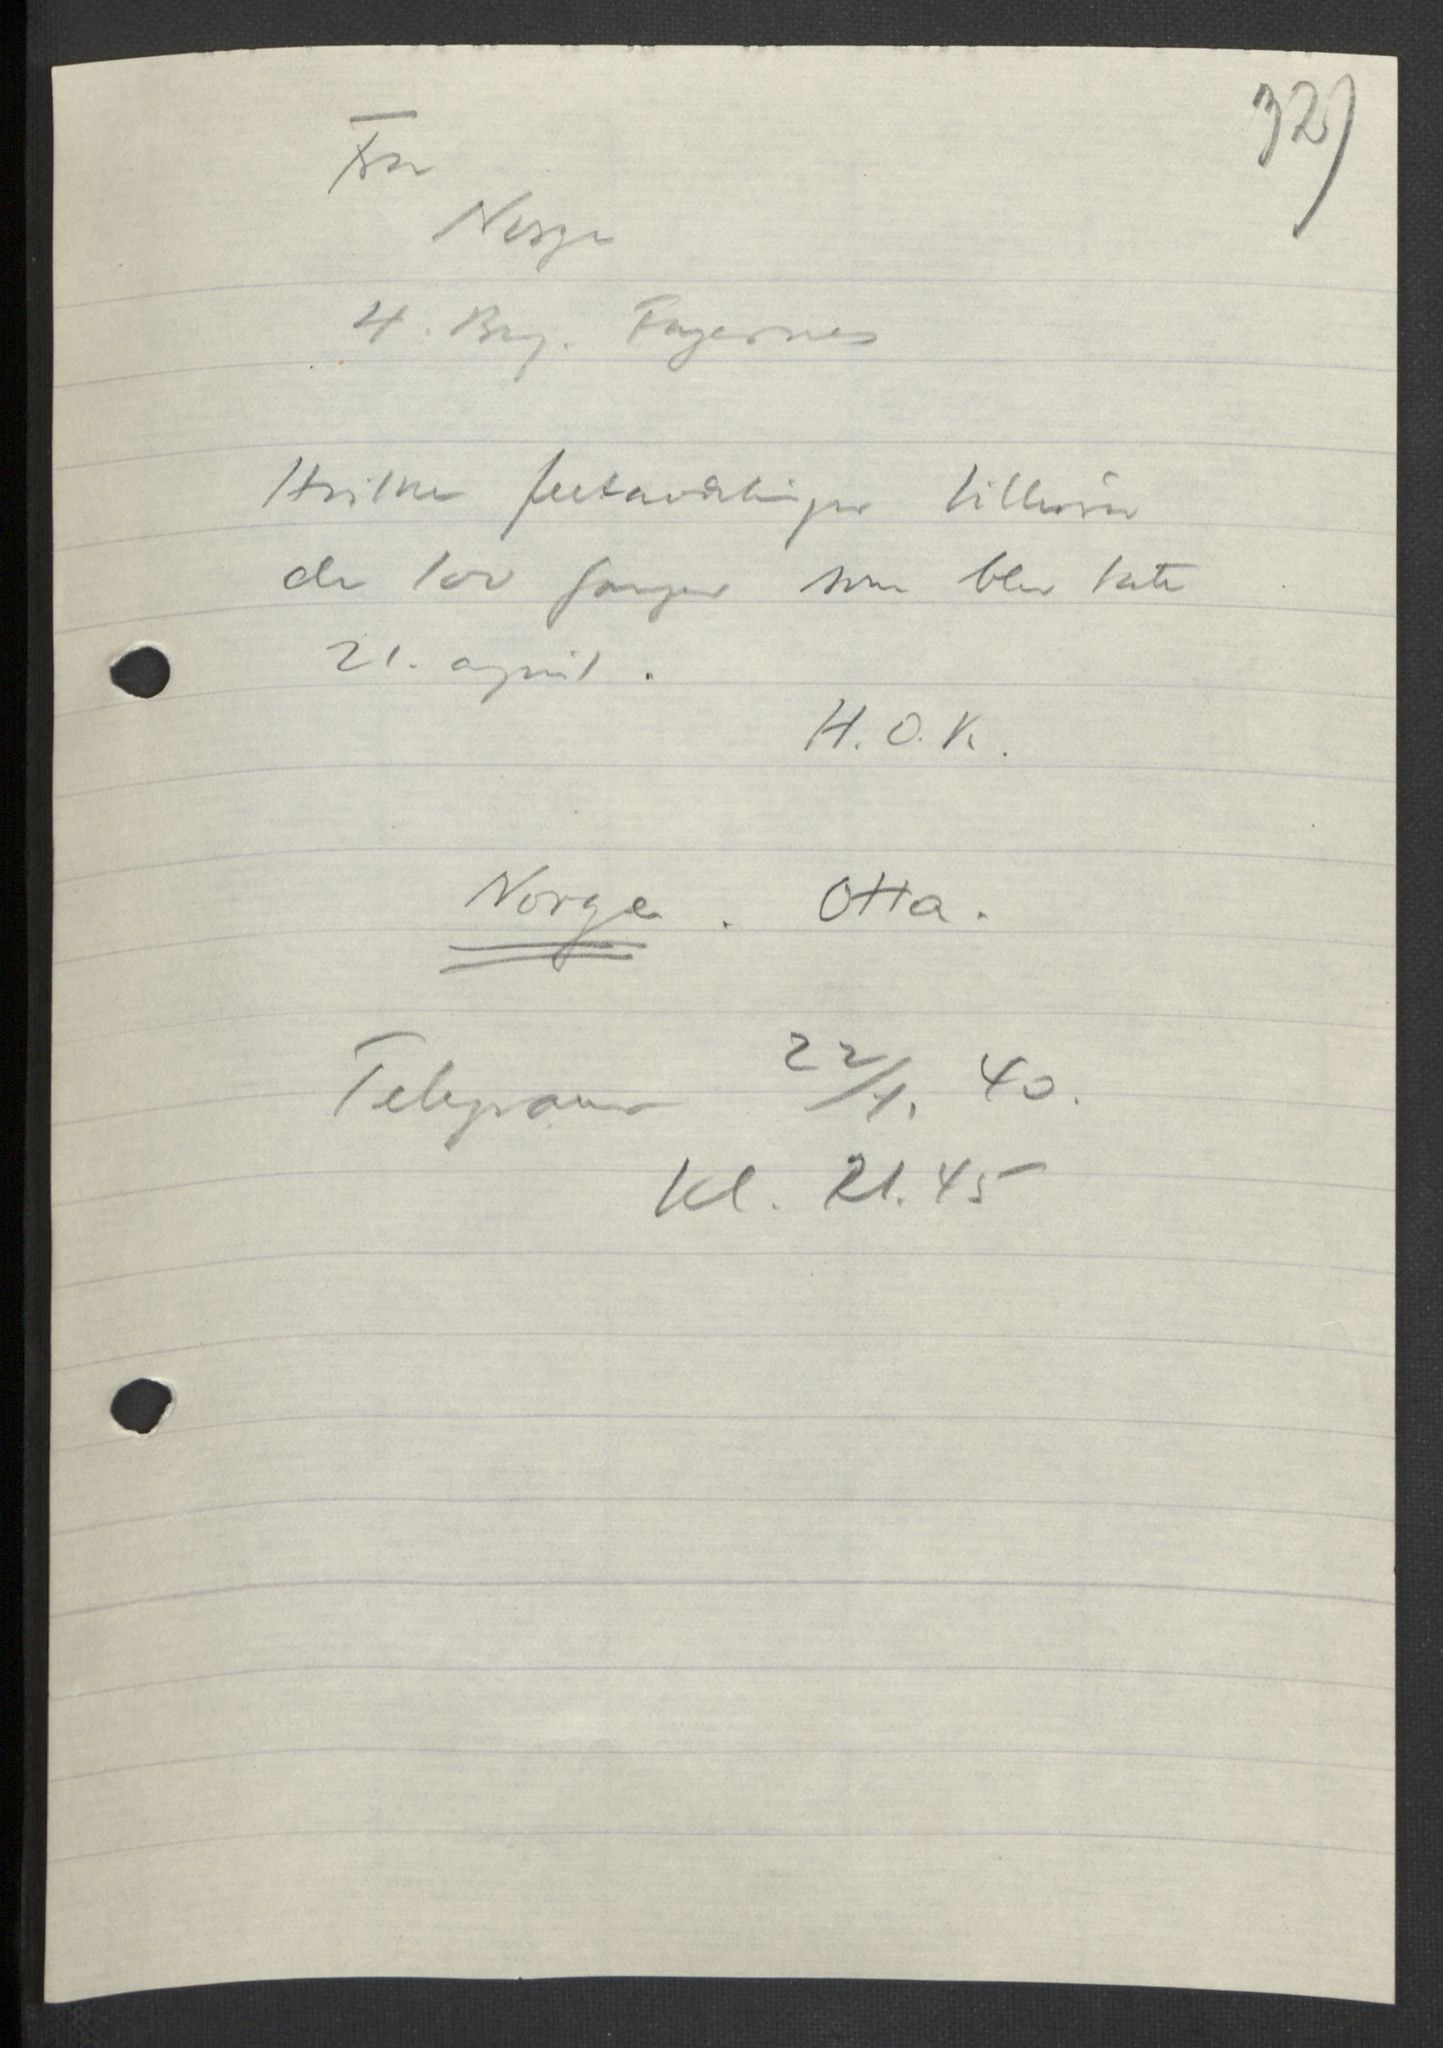 32)
Fra
Norge
4. Brig. Fagernes
Hvilke avdelinger tilhører
de to fanger som blev tatt
21. april.
H.O.K.
Norge. Otta.
Telegram 22/4. 40.
Kl. 21.45